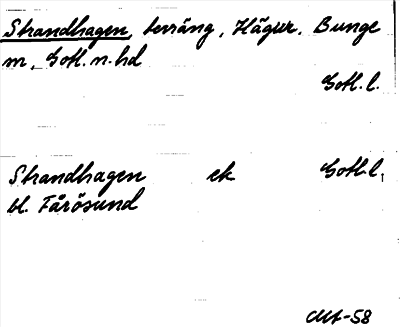 Strandhagen, terräng, Hägur, Bunge
m, Gotl. n. hd
Gotl. l.
Strandhagen ek Gotl. l.
bl. Fårösund
-58